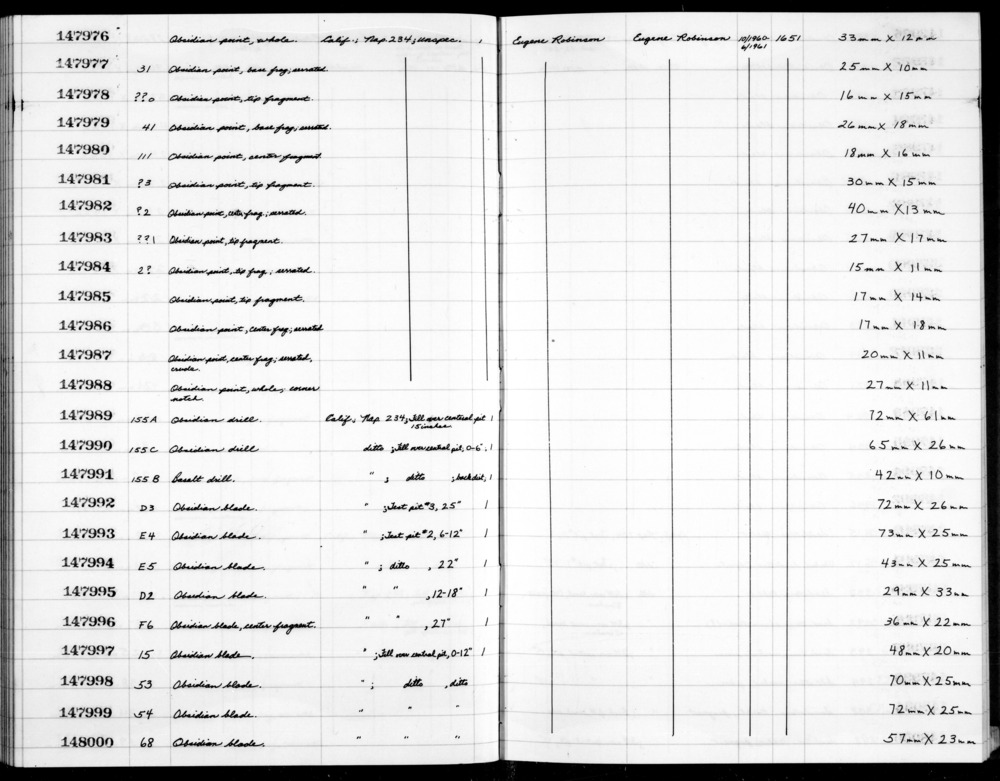 147976 Obsidian point, whole. Calif.; Nap. 234; unspec. 1 Eugene Robinson Eugene Robinson 10/1960- 1651 33mm X 12mm
6/1961
147977 31 Obsidian point, base frag; serrated. 25mm X 10mm
147978 ??0 Obsidian point, tip fragment. 16mm X 15mm
147979 41 Obsidian point, base frag; serrated. 26mm X 18mm
147980 111 Obsidian point, center fragment 18mm X 16mm
147981 ?3 Obsidian point, tip fragment. 30mm X 15mm
147982 ?2 Obsidian point, center frag.; serrated. 40mm X 13mm
147983 ??1 Obsidian point, tip fragment. 27mm X 17mm
147984 2? Obsidian point, tip frag; serrated. 15mm X 11mm
147985 Obsidian point, tip fragment. 17mm X 14mm
147986 Obsidian point, center frag; serrated 17mm X 18mm
147987 Obsidian point, center frag; serrated, 20mm X 11mm
crude.
147988 Obsidian point, whole; corner 27mm X 11mm
notch.
147989 155A Obsidian drill Calif; Nap. 234; Fill over central pit 1 72mm X 61mm
15 inches
147990 155C Obsidian drill ditto ; Fill over central pit, 0-6"; 1 65mm X 26mm
147991 155B Basalt drill. " ; ditto ; backdirt, 1 42mm X 10mm
147992 D3 Obsidian blade. " ; Test pit #3, 25" 1 72mm X 26mm
147993 E4 Obsidian blade. " ; Test pit #2, 6-12" 1 73mm X 25mm
147994 E5 Obsidian blade. " ; ditto , 22" 1 43mm X 25mm
147995 D2 Obsidian blade. " " , 12-18" 1 29mm X 33mm
147996 F6 Obsidian blade, center fragment. " " , 27" 1 36mm X 22mm
147997 15 Obsidian blade. " ; Fill over central pit, 0-12" 1 48mm X 20mm
147998 53 Obsidian blade. " ; ditto , ditto 70mm X 25mm
147999 54 Obsidian blade. " " " 72mm X 25mm
148000 68 Obsidian blade. " " " 57mm X 23mm